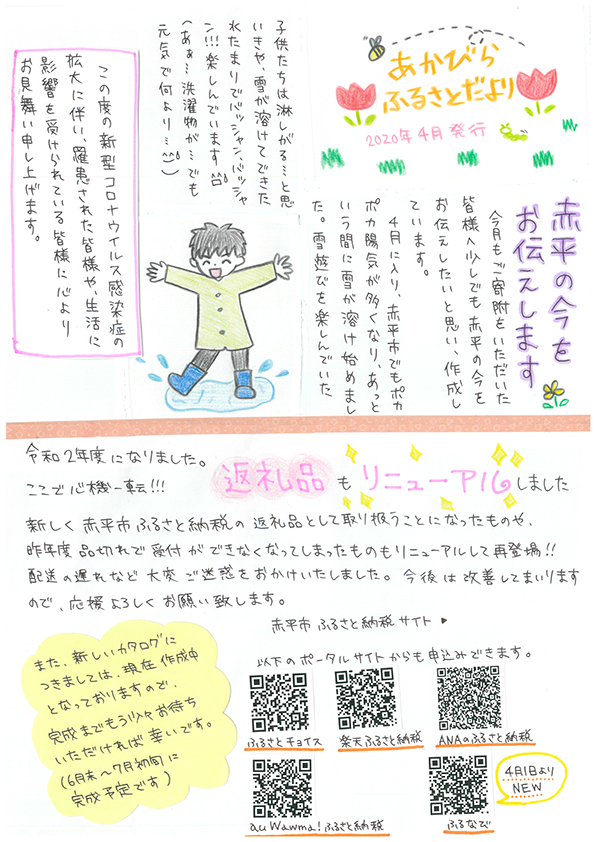 あかびら
ふるさとだより
2020年4月発行
赤平の今を
お伝えします
今月もご寄附をいただいた
皆様へ少しでも赤平の今を
お伝えしたいと思い、作成し
ています。
4月に入り、赤平市でもポカ
ポカ陽気が多くなり、あっと
いう間に雪が溶け始めまし
た。雪遊びを楽しんでいた
子供たちは淋しがる…と思
いきや、雪が溶けてできた
水たまりでバッシャン、バッシャ
ン!!!楽しんでいます
(あぁ…洗濯物が…でも
元気で何より…^^;)
この度の新型コロナウイルス感染症の
拡大に伴い、罹患された皆様や、生活に
影響を受けられている皆様に心より
お見舞い申し上げます。
令和2年度になりました。
ここで心機一転!!!
返礼品もリニューアルしました
新しく赤平市ふるさと納税の返礼品として取り扱うことになったものや、
昨年度品切れで受付ができなくなってしまったものもリニューアルして再登場!!
配送の遅れなど大変ご迷惑をおかけいたしました。今後は改善してまいります
ので、応援よろしくお願い致します。
赤平市ふるさと納税サイト
以下のポータルサイトからも申込みできます。
ふるさとチョイス
楽天ふるさと納税
ANAのふるさと納税
au Wawma!ふるさと納税
ふるなび
4月1日より
NEW
また、新しいカタログに
つきましては、現在作成中
となっておりますので、
完成までもう少々お待ち
いただければ幸いです。
(6月末〜7月初旬に
完成予定です)